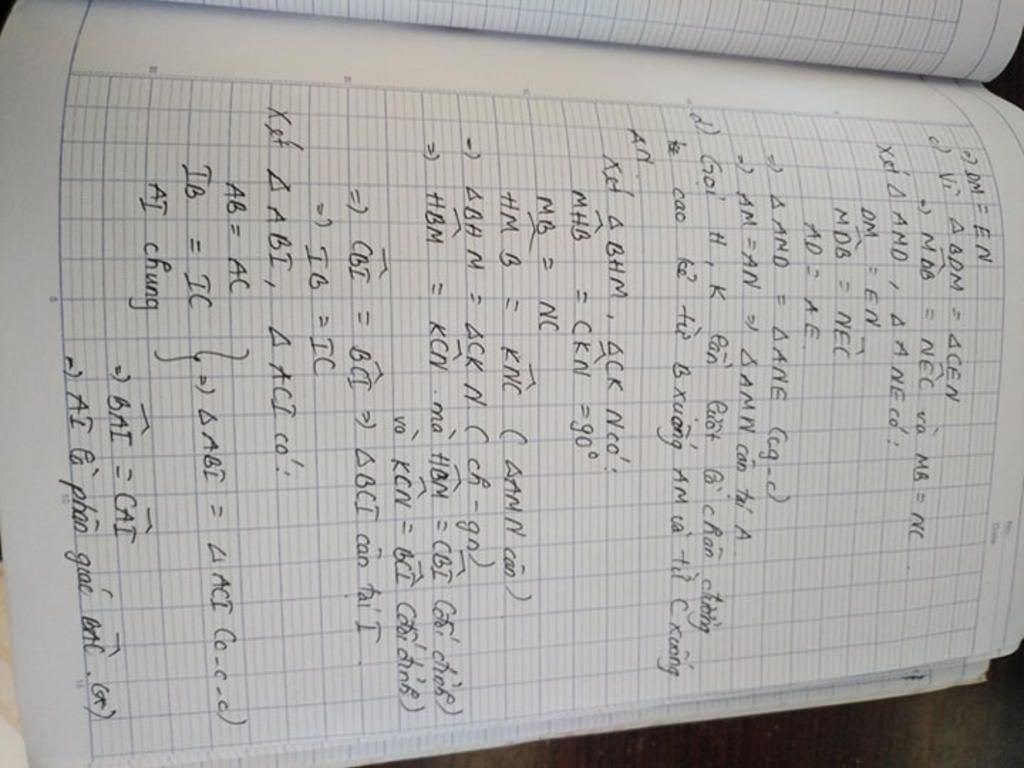 =) DM = EN
c) Vì ΔBDM = ΔCEN
=) MDB = NEC và MB = NC
Xét ΔAMD, ΔANE có:
DM = EN
MDB = NEC
AD = AE
=) ΔAMD = ΔANE (c-g-c)
=) AM = AN =) ΔAMN cân tại A
d) Gọi H, K lần lượt là chân đường
cao kẻ từ B xuống AM và từ C xuống
AN.
Xét ΔBHM, ΔCKN có:
MHB = CKN = 90°
MB = NC
HMB = KNC (ΔAMN cân)
=) ΔBHM = ΔCKN (ch-gn)
=) HBM = KCN mà HBM = CBI (đối đỉnh)
và KCN = BCI (đối đỉnh)
=) CBI = BCI =) ΔBCI cân tại I
=) IB = IC
Xét ΔABI, ΔACI có:
AB = AC
IB = IC } =) ΔABI = ΔACI (c-c-c)
AI chung
=) BAI = CAI
=) AI là phân giác BAC.